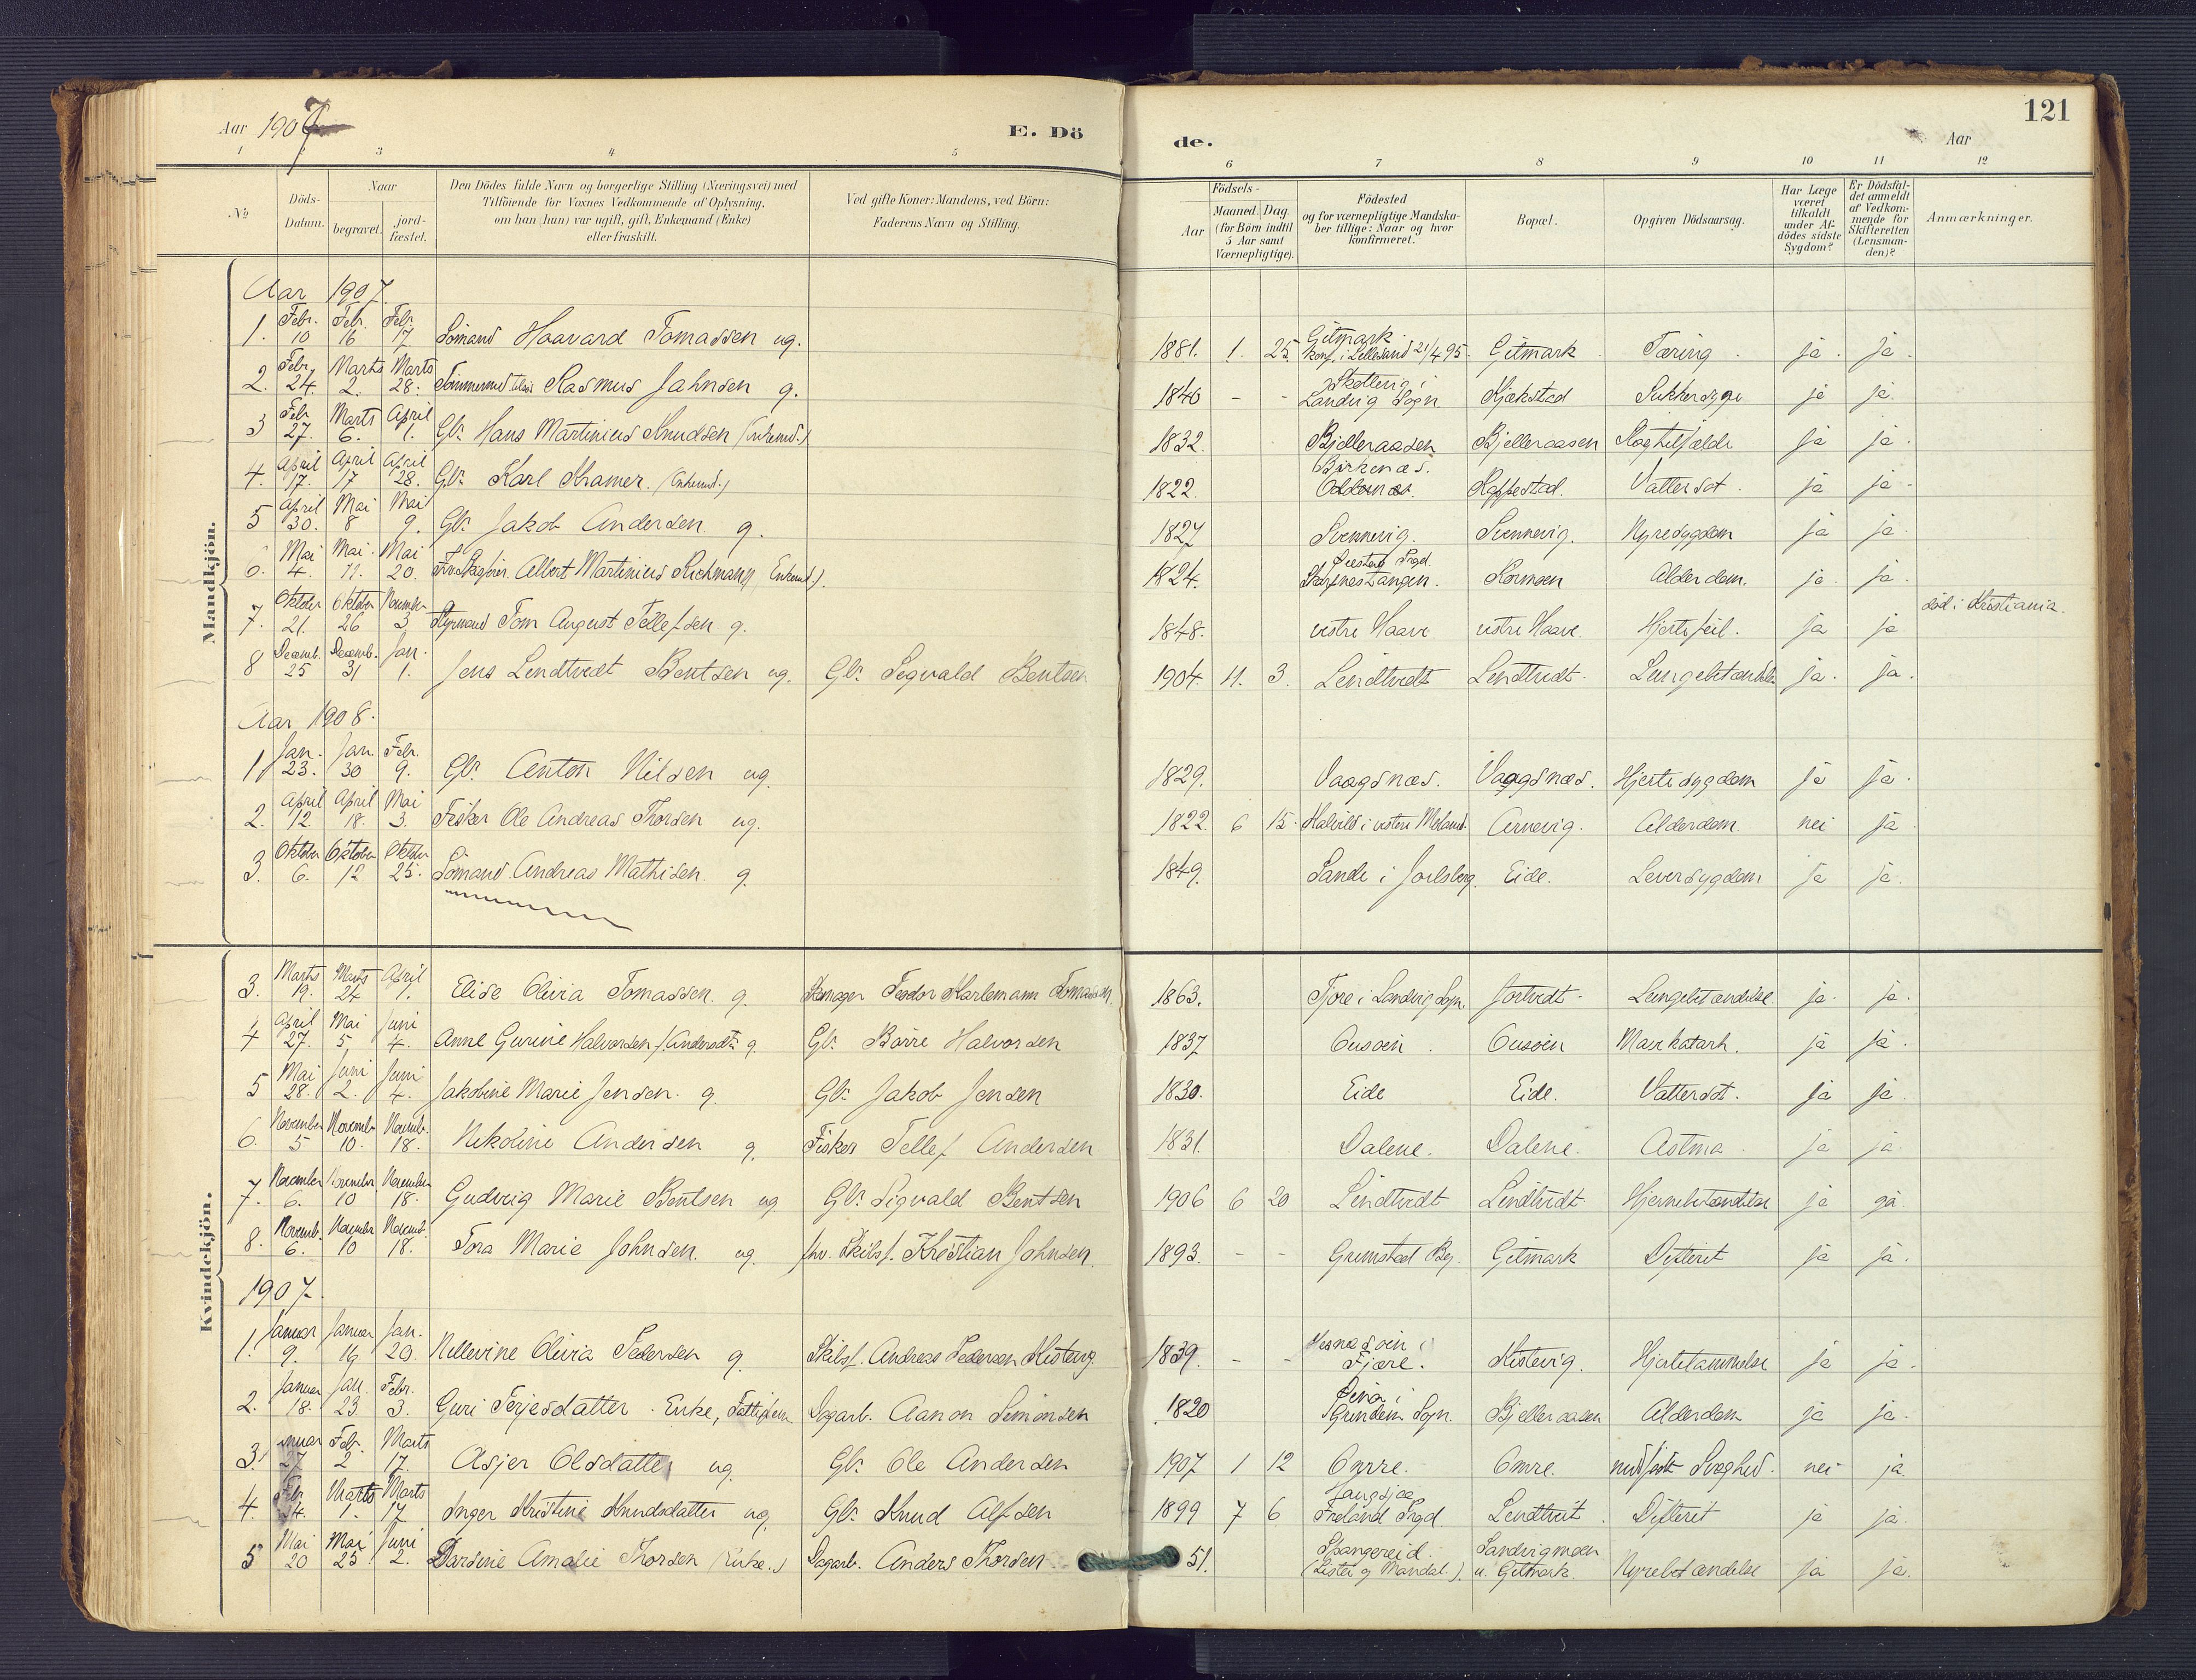 121
Aar 1907
E. Dö
de.
Aar
1 2 3 4 5 6 7 8 9 10 11 12
No
Döds-Datum.
Naar
begravet.
jord-fæstet.
Den Dödes fulde Navn og borgerlige Stilling (Næringsvei) med
Tilföiende for Voxnes Vedkommende af Oplysning,
om han (hun) var ugift, gift, Enkemand (Enke)
eller fraskilt.
Ved gifte Koner: Mandens, ved Börn:
Faderens Navn og Stilling.
Födsels-
Aar
Maaned. Dag.
(for Börn indtil
5 Aar samt
Værnepligtige).
Födested
og for værnepligtige Mandska-
ber tillige: Naar og hvor
konfirmeret.
Bopæl.
Opgiven Dödsaarsag.
Har Læge
været
tilkaldt
under Af-
dödes sidste
Sygdom?
Er Dödsfal-
det anmeldt
af Vedkom-
mende for
Skifteretten
(Lensman-
den)?
Anmærkninger.
Mandkjön.
Aar 1907.
1. Febr. 10 Feb. 16 Feb. 17. Sömand Haavard Tomassen ug. 1881. 1. 25 Gitmark. konf. i Lillesand 21/4 95. Gitmark Tæring. ja. ja.
2. Febr. 24. Marts 2. Marts 28. Rasmus Jahnsen g. 1840 - - Landvig Sogn Kjækstad Sukkersyge ja ja.
3 Feb. 27. Marts 6. April 1. Gbr. Hans Martinius Knudsen (Enkemd.) 1832. Bjelleraasen Bjelleraasen Slagtilfælde ja ja.
4. April 17. April 17 April 28. Gbr. Karl Kramer. (Enkemd.) 1822. Birkenæs. Vattersot. ja ja.
5 April 30. Mai 8 Mai 9. Gbr. Jakob Andersen. g. 1827 Svennevig. Svennevig. Nyresygdom ja ja.
6. Mai 4. Mai 11. Mai 20. Albert Martinius (Enkemd.). 1824. Alderdom. ja. ja.
7. Oktober 21. Oktober 26 November 3 Styrmand Tom August Tellefsen g. 1848. vestre Haave vestre Haave. Hjertefeil. ja ja död i Kristiania.
8 Decemb. 25 Decemb. 31 Jan. 1. Jens Lendtvedt Bentsen ug. Gbr. Sigvald Bentsen 1904. 11. 3. Lendtvedt Lendtvedt. Lungebetændelse ja. ja.
Aar 1908.
1 Jan. 23. Jan. 30 Febr. 9. Gbr. Anton Nilsen ug. 1829. Vaagsnæs. Vaagsnæs. Hjertesygdom ja ja.
2. April 12. April 18. Mai 3. Fisker Ole Andreas Thorsen ug. 1822. 6 15. Arnevig. Alderdom nei ja
3. Oktober 6. Oktober 12 Oktober 25. Sömand. Andreas Mathisen g. 1849. Sande i Jarlsberg. Eide. Leversygdom ja ja.
Kvindekjön.
3. Marts 19. Marts 24 April 1. Elise Olivia Tomassen. g. Teodor Karlemann Tomassen. 1863. Landvig Sogn. Jortvedt. Lungebetændelse ja. ja.
4 April 27. Mai 5 Juni 4. Anne Gurine Halvorsen g. Gbr. Börre Halvorsen 1837 Ousøen. Ousøen Mavekatarh. ja ja.
5 Mai 28. Juni 2. Juni 4. Jakobine Marie Jensen. g. Gbr. Jakob Jensen 1830. Eide Eide. Vattersot. ja ja.
6. November 5 Novemb. 10. Novemb. 18. Nikoline Andersen g. Fisker Tellef Andersen 1831. Dalene. Dalene. Astma ja ja.
7. November 6. November 10 November 18. Gudvig Marie Bentsen ug Gbr. Sigvald Bentsen 1906 6 20 Lindtvedt Lindtvedt Hjernebetændelse ja ja.
8. Novemb. 6. November 10 Novemb. 18. Tora Marie Johnsen. ug fhv. Skibsf. Kristian Johnsen. 1893. - - Grimstad By. Gitmark Difterit ja ja.
1907.
1. Januar 9. Januar 19 Jan. 20. Nellevine Olivia Pedersen g. Skibsf. Andreas Pedersen Kistevig. 1839. - - Fjære. Kistevig. Hjertelammelse ja ja.
2. Januar 18. Jan. 23 Febr. 3. Guri Terjesdatter. Enke, Dagarb. Aanon Simonsen 1820 Sogn. Bjelleraasen Alderdom ja ja.
3. Januar 27 Feb. 2 Marts 17. Asjer Olsdatter ug. Gbr. Ole Andersen 1907 1 12 Omre. Omre. medfødt Svaghed. nei ja.
4. Feb. 24. Marts 1. Marts 17 Inger Kristine Knudsdatter ug. Gbr. Knud Alfsen 1899 7 6 Lendtveit. Difterit ja ja.
5 Mai 20 Mai 25 Juni 2. Amalie Thorsen (Enke.) Dagarb. Anders Thorsen 51. Spangereid. (Lister og Mandal.). Sandvigmoen u. Gitmark. Nyrebetændelse ja ja.